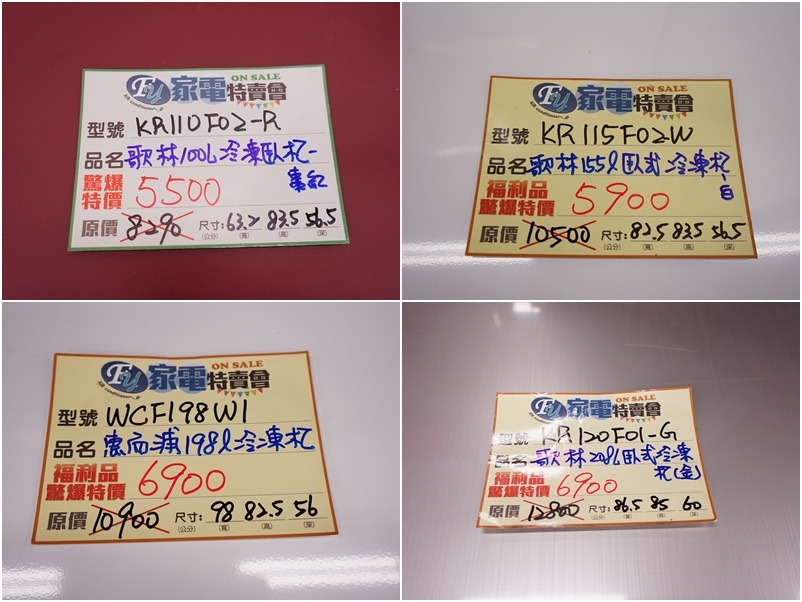 Fy 家電特賣會 ON SALE
型號 KR110F02-R
品名 歌林100L冷凍臥柜-
棗紅
驚爆特價 5500
原價 8290 尺寸:(公分) 63.7(寬) 83.5(高) 56.5(深)
Fy 家電特賣會 ON SALE
型號 KR115F02W
品名 歌林155l臥式冷凍柜
-白
福利品
驚爆特價 5900
原價 10500 尺寸:(公分) 82.5(寬) 83.5(高) 56.5(深)
Fy 家電特賣會 ON SALE
型號 WCF198W1
品名 惠而浦198l冷凍柜
福利品
驚爆特價 6900
原價 10900 尺寸:(公分) 98(寬) 82.5(高) 56(深)
Fy 家電特賣會 ON SALE
型號 KR120F01-G
品名 歌林200l臥式冷凍
柜(金)
福利品
驚爆特價 6900
原價 12800 尺寸:(公分) 96.5(寬) 85(高) 60(深)